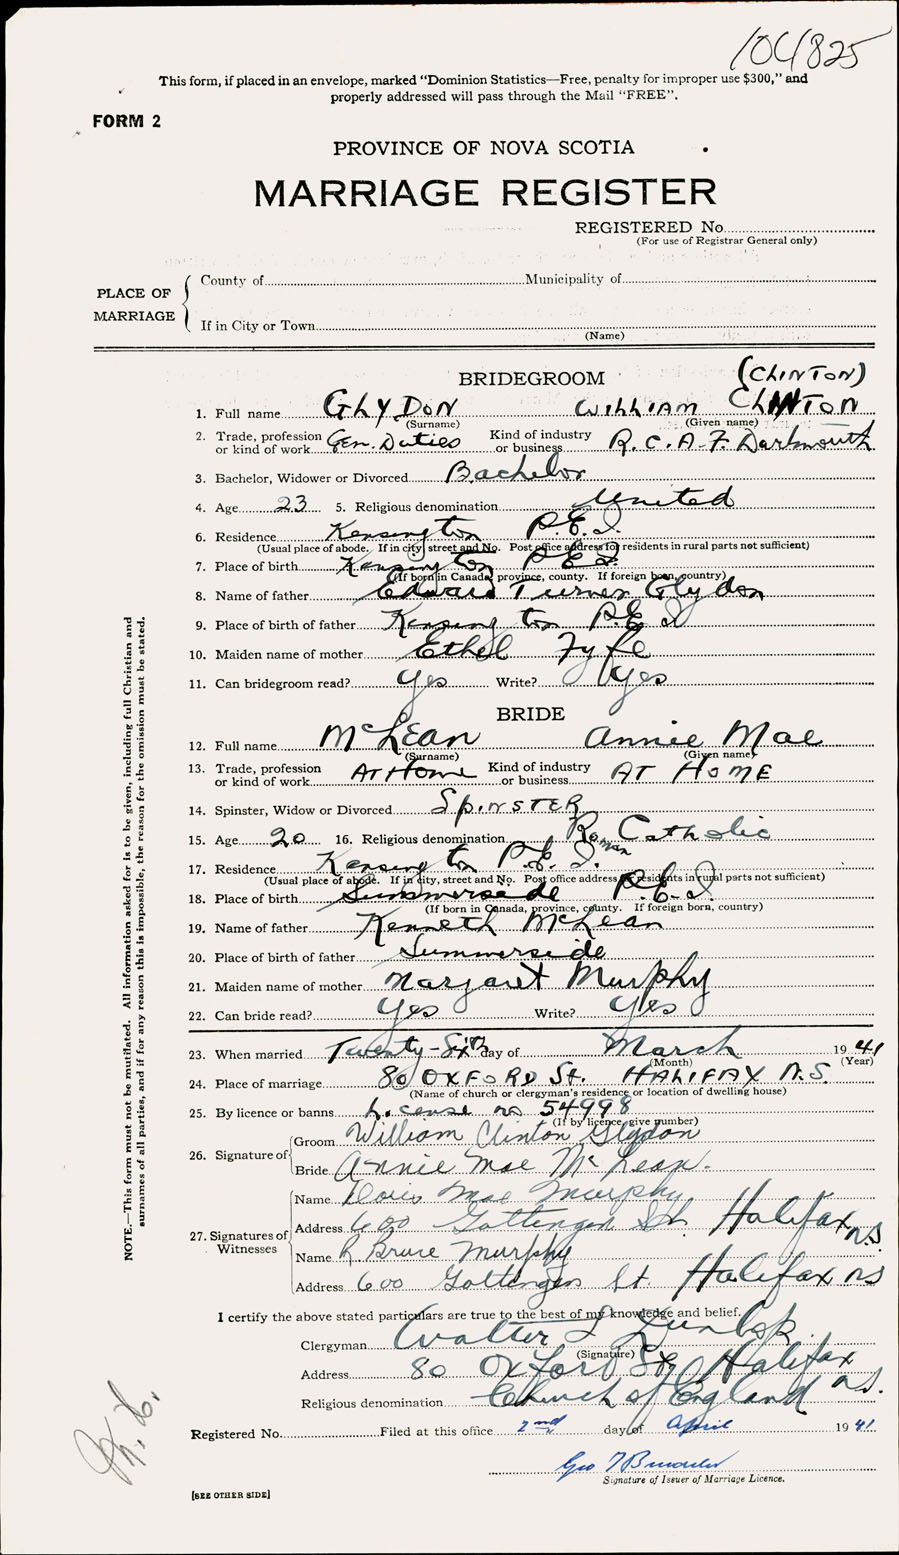 104825
This form, if placed in an envelope, marked "Dominion Statistics—Free, penalty for improper use $300," and
properly addressed will pass through the Mail "FREE".
FORM 2
PROVINCE OF NOVA SCOTIA
MARRIAGE REGISTER
REGISTERED No.
(For use of Registrar General only)
PLACE OF MARRIAGE
County of Municipality of
If in City or Town
(Name)
BRIDEGROOM (CLINTON)
1. Full name GLYDON WILLIAM CLINTON
(Surname) (Given name)
2. Trade, profession or kind of work Gen. Duties Kind of industry or business R.C.A.F. Dartmouth
3. Bachelor, Widower or Divorced Bachelor
4. Age 23 5. Religious denomination United
6. Residence Kensington P.E.I
(Usual place of abode. If in city, street and No. Post office address for residents in rural parts not sufficient)
7. Place of birth Kensington P.E.I.
(If born in Canada, province, county. If foreign born, country)
8. Name of father Edward Turner Glydon
9. Place of birth of father Kensington P.E.I
10. Maiden name of mother Ethel Fyfe
11. Can bridegroom read? Yes Write? Yes
BRIDE
12. Full name McLean Annie Mae
(Surname) (Given name)
13. Trade, profession or kind of work AT Home Kind of industry or business AT HOME
14. Spinster, Widow or Divorced SPINSTER
15. Age 20 16. Religious denomination Roman Catholic
17. Residence Kensington P.E.I.
(Usual place of abode. If in city, street and No. Post office address for residents in rural parts not sufficient)
18. Place of birth Summerside P.E.I
(If born in Canada, province, county. If foreign born, country)
19. Name of father Kenneth McLean
20. Place of birth of father Summerside
21. Maiden name of mother Margaret Murphy
22. Can bride read? Yes Write? Yes
23. When married Twenty-Sixth day of March 1941
(Month) (Year)
24. Place of marriage 80 OXFORD St. HALIFAX N.S.
(Name of church or clergyman's residence or location of dwelling house)
25. By licence or banns License no 54998
(If by licence, give number)
26. Signature of Groom William Clinton Glydon
Bride Annie Mae McLean.
27. Signatures of Witnesses
Name Doris Mae Murphy
Address 600 Gottengen St Halifax N.S.
Name R Bruce Murphy
Address 600 Gottengen St. Halifax NS
I certify the above stated particulars are true to the best of my knowledge and belief.
Clergyman Walter S Dunlop
(Signature)
Address 80 Oxford St Halifax N.S.
Religious denomination Church of England
Registered No. Filed at this office 2nd day of April 1941
Geo
Signature of Issuer of Marriage Licence.
[SEE OTHER SIDE]
NOTE.—This form must not be mutilated. All information asked for is to be given, including full Christian and
surnames of all parties, and if for any reason this is impossible, the reason for the omission must be stated.